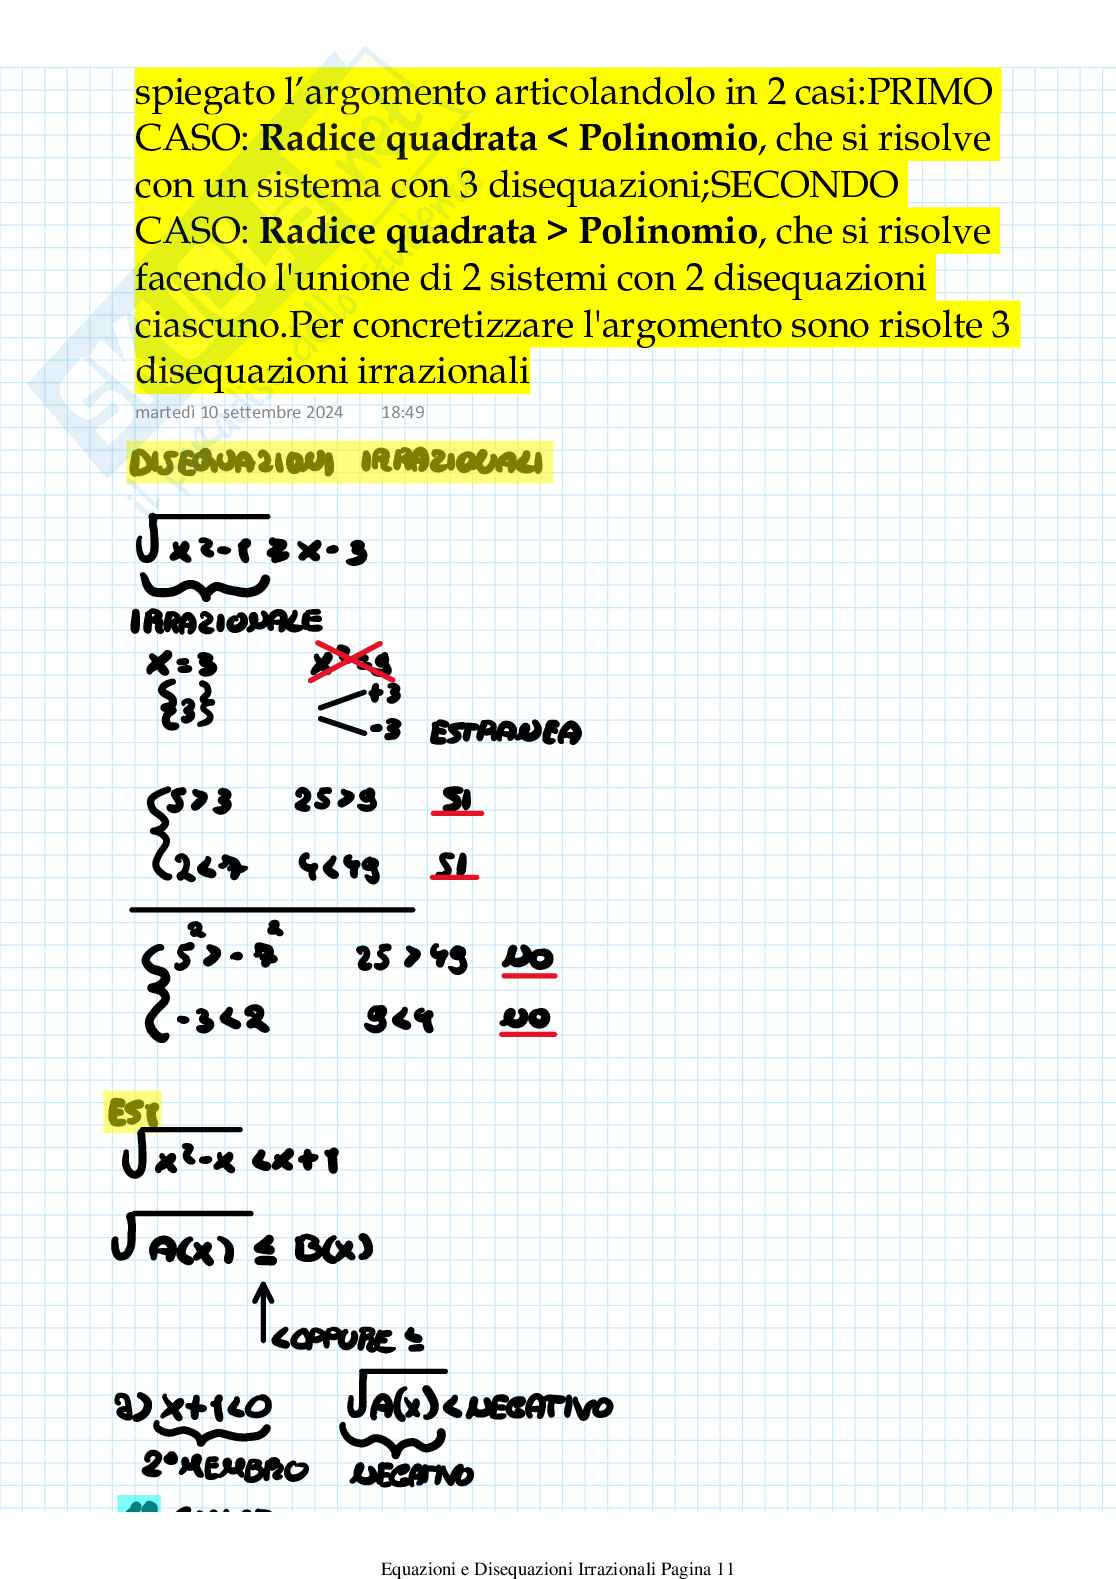 spiegato l’argomento articolandolo in 2 casi:PRIMO
CASO: Radice quadrata < Polinomio, che si risolve
con un sistema con 3 disequazioni;SECONDO
CASO: Radice quadrata > Polinomio, che si risolve
facendo l'unione di 2 sistemi con 2 disequazioni
ciascuno.Per concretizzare l'argomento sono risolte 3
disequazioni irrazionali
martedì 10 settembre 2024 18:49
DISEQUAZIONI IRRAZIONALI
√x²-1 ≥ x-3
IRRAZIONALE
x=3 x²=9
{3} +3
-3 ESTRANEA
5>3 25>9 SI
2<7 4<49 SI
5²>-7² 25>49 NO
-3<2 9<4 NO
ES1
√x²-x <x+1
√A(x) ≤ B(x)
<OPPURE ≤
a) x+1<0 √A(x) < NEGATIVO
2° MEMBRO NEGATIVO
Equazioni e Disequazioni Irrazionali Pagina 11